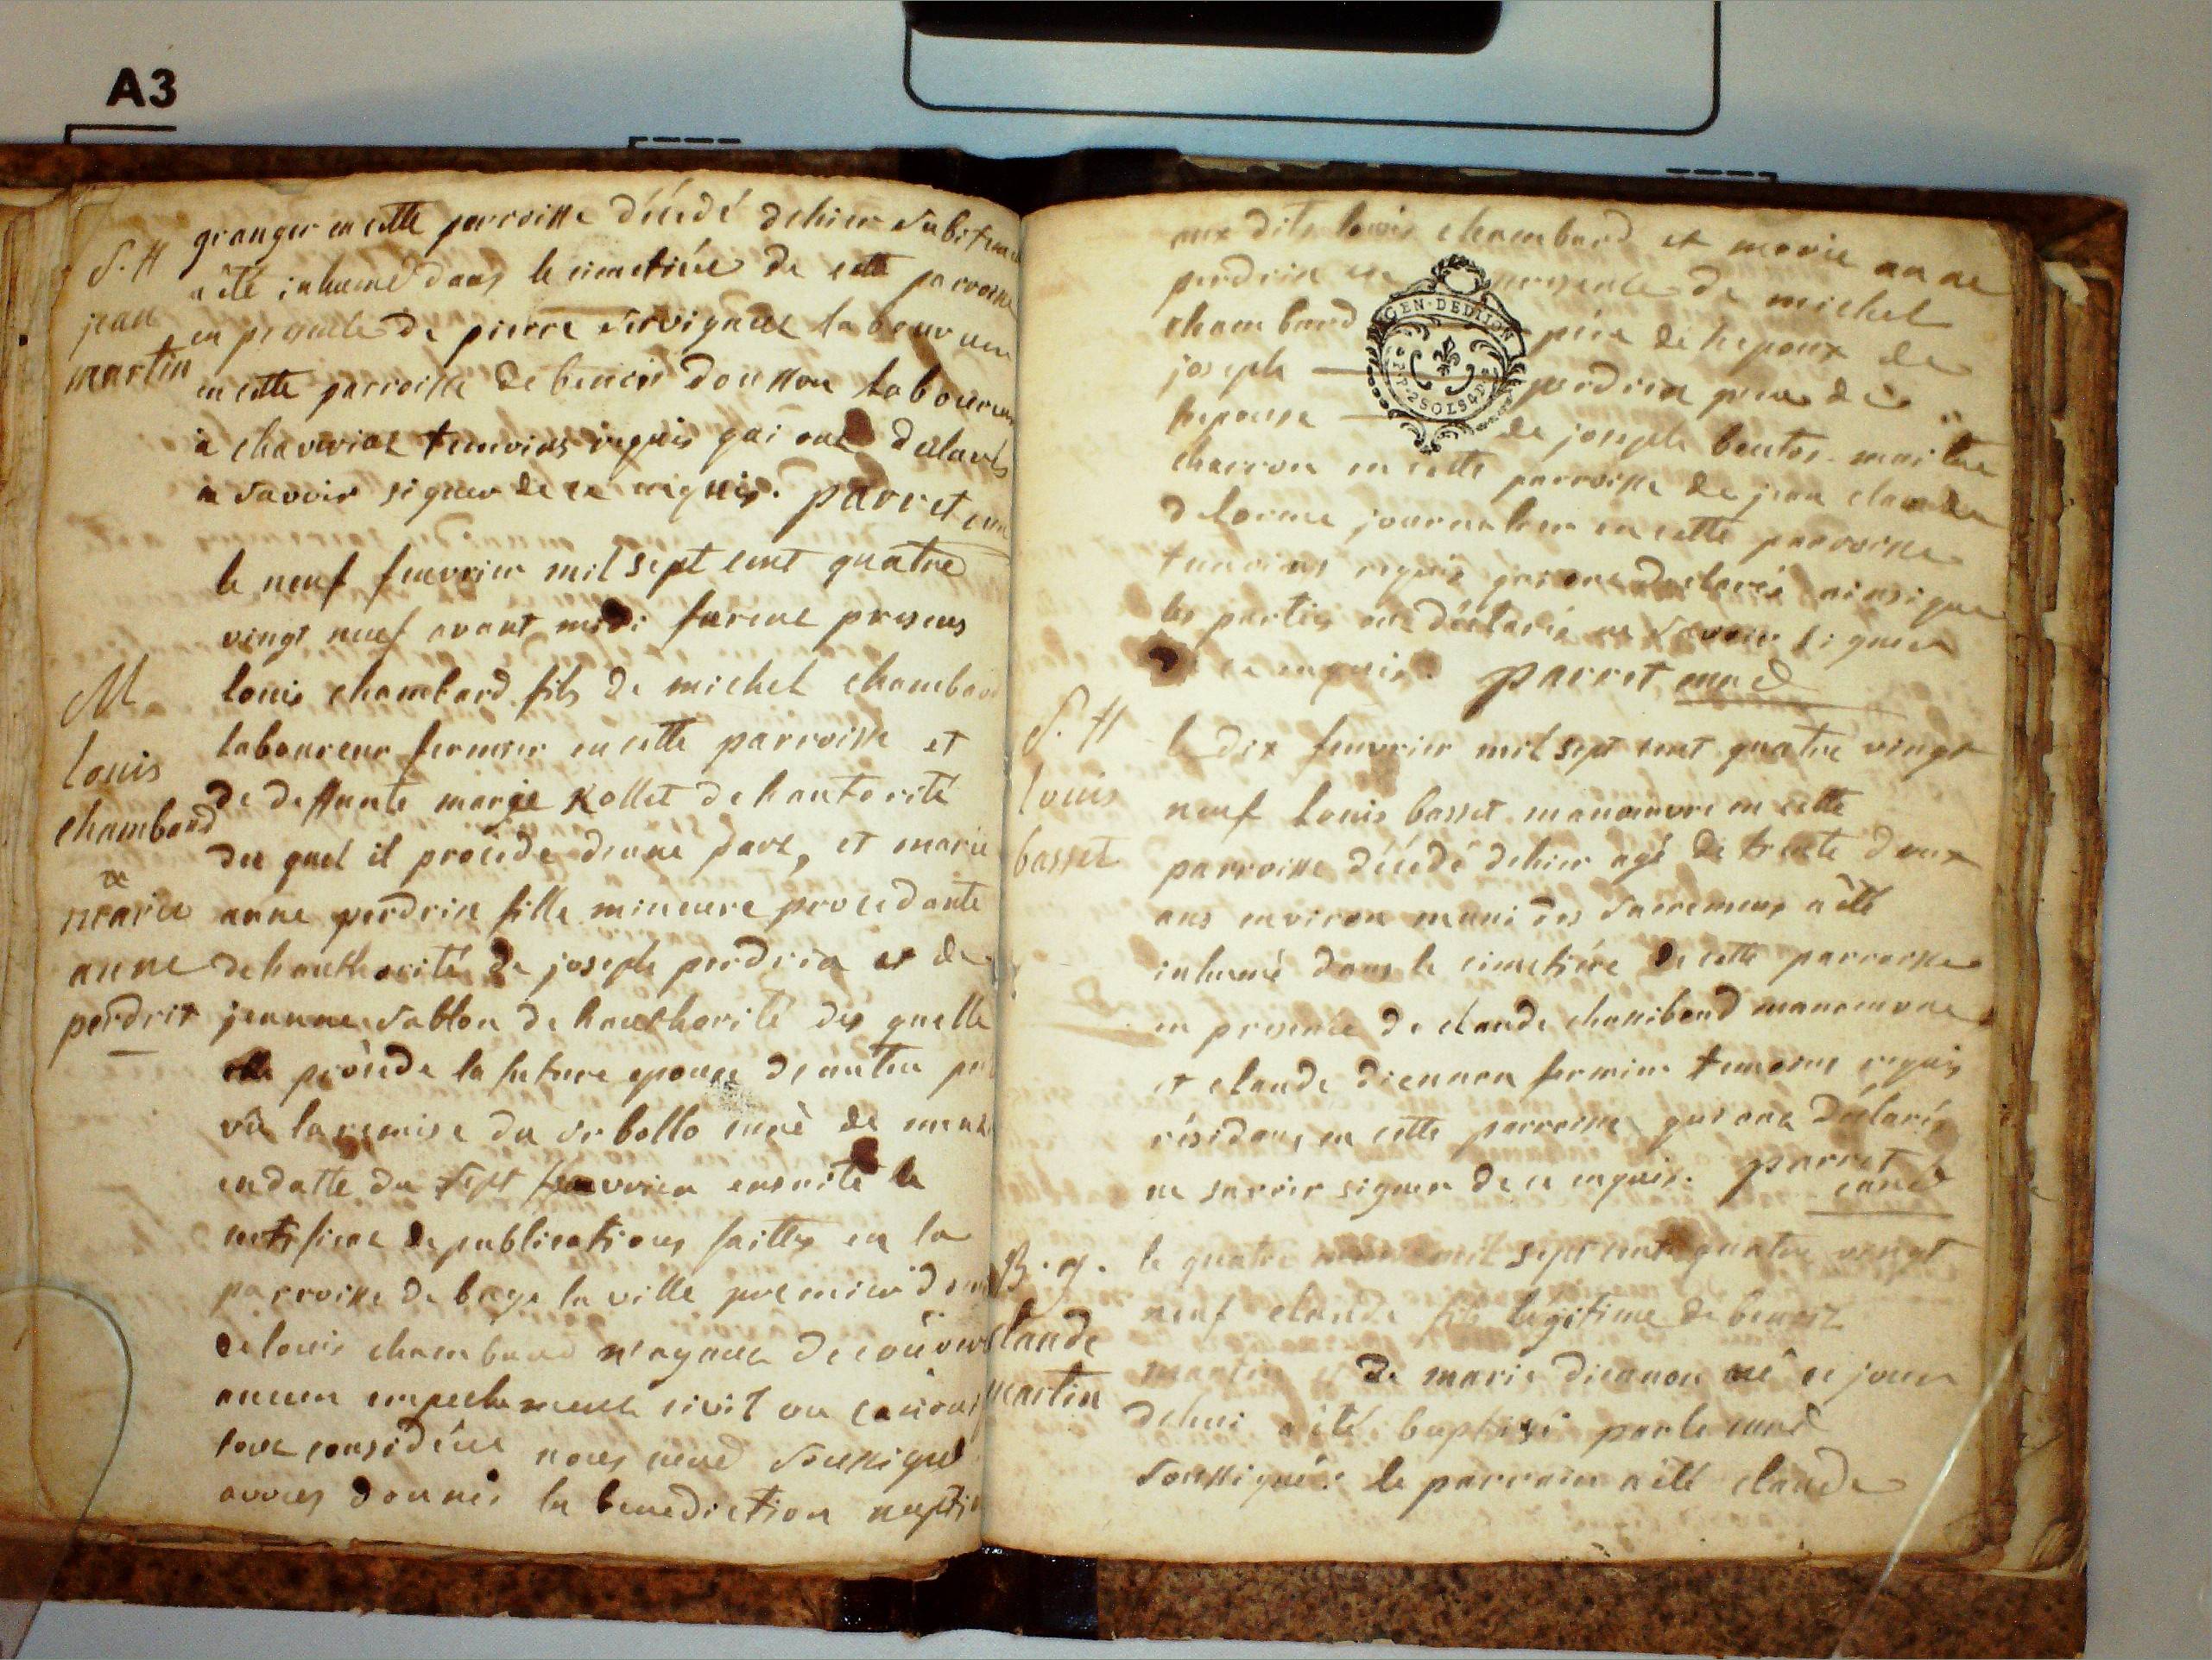 A3
granger en cette parroisse décédé dehier subitem
a été inhumé dans le cimetiére de cette parroisse
S. H
jean
martin
en presence de pierre servignat laboureur
en cette parroisse de benoit dousson laboureur
à chaveriat temoins requis qui ont declarés
ne savoir signer de ce enquis. parret curé
le neuf fevvrier mil sept cent quatre
vingt neuf avant midi furent presens
M
louis
chambard
&
marie
anne
perdrix
louis chambard fils de michel chambard
laboureur fermier en cette parroisse et
de deffunte marie Kollet de hautorité
du quel il procéde d'une part, et marie
anne perdrix fille mineure procedante
de hauthorité de joseph perdrix et de
jeanne sablon de hauthorité des quelle
procéde la future epouse d'autre part
vû la remise du sr bollo curé de
en datte du sept fevvrier ensuite le
certificat de publications faittes en la
parroisse de bage la ville premier dom
de louis chambard n'ayant decouvert
aucun empechement civil ou canoni
tout considéré nous curé soussigné
avons donnés la benediction nuptial
aux dits louis chambard et marie anne
perdrix en presence de michel
chambard pére de hepoux de
joseph perdrix pere de
hepouse de joseph boutor maitre
charron en cette parroisse de jean claude
delorme journalier en cette parroisse
temoins requis qui ont declarés ainsi que
les parties ont déclarés ne savoir signer
de ce enquis. parret curé
GEN·DEDIJON
2SOLS4D
S. H
louis
basset
le dix fevvrier mil sept cent quatre vingt
neuf louis basset manoeuvre en cette
parroisse décédé dehier agé de trente deux
ans environ muni des sacremens a été
inhumé dans le cimetiére de cette parroisse
en presence de claude chambard manoeuvre
et claude diennon fermier temoins requis
résidens en cette parroisse qui ont déclarés
ne savoir signer de ce enquis. parret
curé
B. g.
claude
martin
le quatre mars mil sept cent quatre vingt
neuf claude fils légitime de benoit
martin et de marie diennon né ce jour
dehui a été baptisé par le curé
soussigné: le parrain a été claude